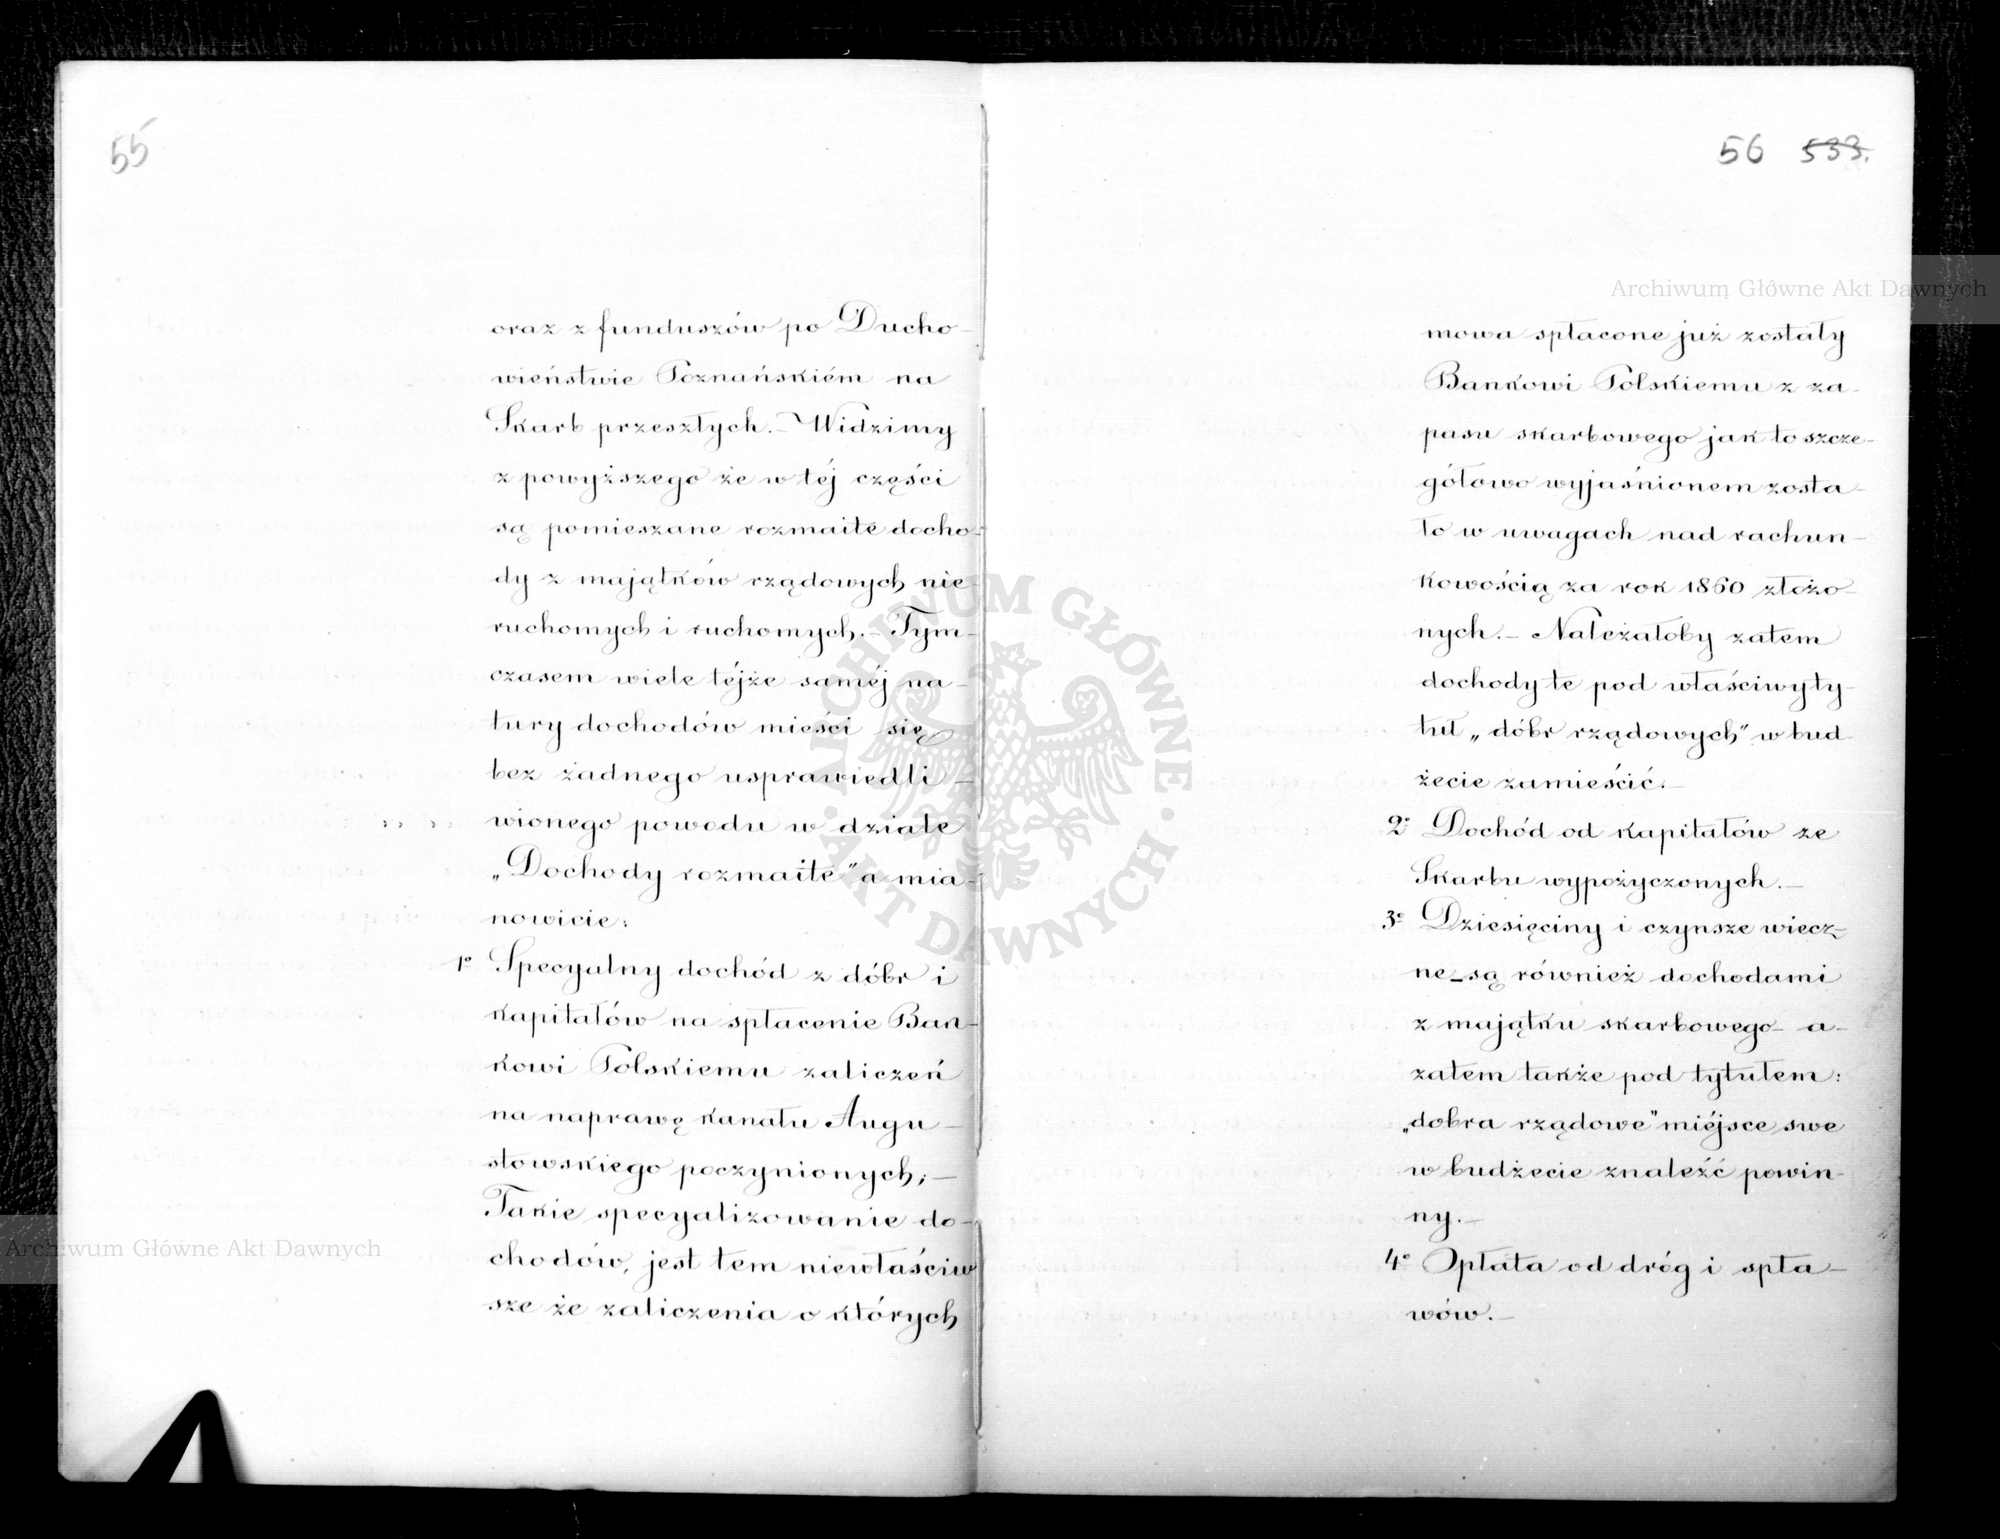 55
oraz z funduszów po Ducho-
wieństwie Poznańskiém na
Skarb przeszłych.- Widzimy
z powyższego że w téj części
są pomieszane rozmaite docho-
dy z majątków rządowych nie-
ruchomych i ruchomych.- Tym-
czasem wiele téjże saméj na-
tury dochodów mieści się
bez żadnego usprawiedli-
wionego powodu w dziale
„Dochody rozmaite" a mia-
nowicie:
1o Specyalny dochód z dóbr i
kapitałów na spłacenie Ban-
kowi Polskiemu zaliczeń
na naprawę kanału Augu-
stowskiego poczynionych;-
Takie specyalizowanie do-
chodów, jest tem niewłaściw
sze że zaliczenia o których
56 533.
mowa spłacone już zostały
Bankowi Polskiemu z za-
pasu skarbowego jak to szcze-
gółowo wyjaśnionem zosta-
ło w uwagach nad rachun-
kowością za rok 1860 złożo-
nych.- Należałoby zatem
dochody te pod właściwy ty-
tuł „dóbr rządowych" w bud-
żecie zamieścić.-
2o Dochód od kapitałów ze
Skarbu wypożyczonych.-
3o Dziesięciny i czynsze wiecz-
ne_są również dochodami
z majątku skarbowego- a-
zatem także pod tytułem:
„dobra rządowe" miéjsce swe
w budżecie znaleźć powin-
ny.-
4o Opłata od dróg i spła-
wów.-
Archiwum Główne Akt Dawnych
ARCHIWUM GŁÓWNE
AKT DAWNYCH
Archiwum Główne Akt Dawnych